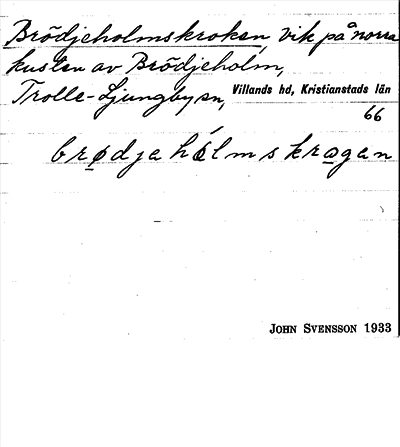 Brödjeholmskroken, vik på norra
kusten av Brödjeholm,
Trolle-Ljungby sn, Villands hd, Kristianstads län
66
brødjahólmskrogan
JOHN SVENSSON 1933